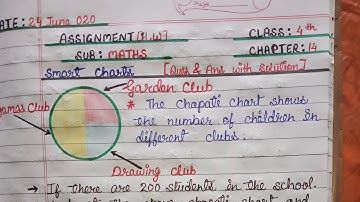 ATE: 24 June 020
ASSIGNMENT (H.W) CLASS: 4th
SUB: MATHS CHAPTER: 14
Smart Charts [Ques & Ans with solution]
Gardan Club
ames Club
* The Chapati chart shows
the number of children in
different clubs.
Drawing Club
→ If there are 200 students in the school.
the above chapati chart and